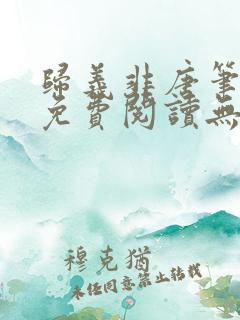 歸義非唐筆
免費閱讀無
穆克猶
未经同意禁止转载